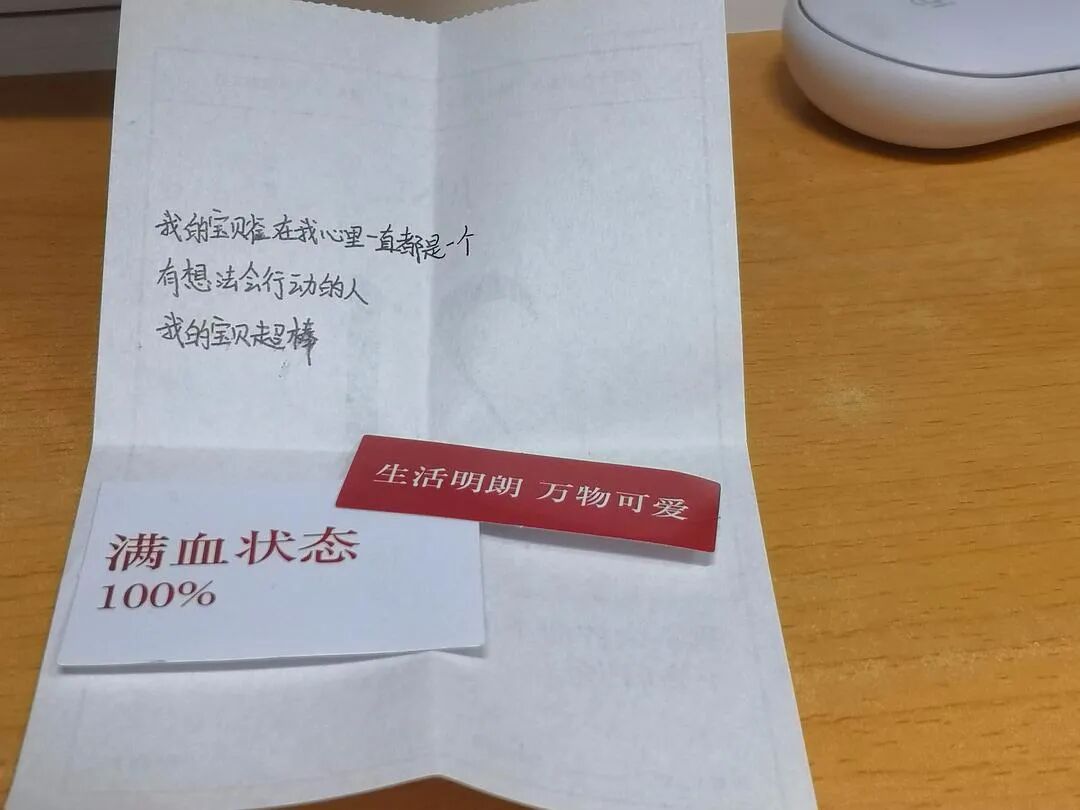 我的宝贝在我心里一直都是一个
有想法会行动的人
我的宝贝超棒
生活明朗 万物可爱
满血状态
100%